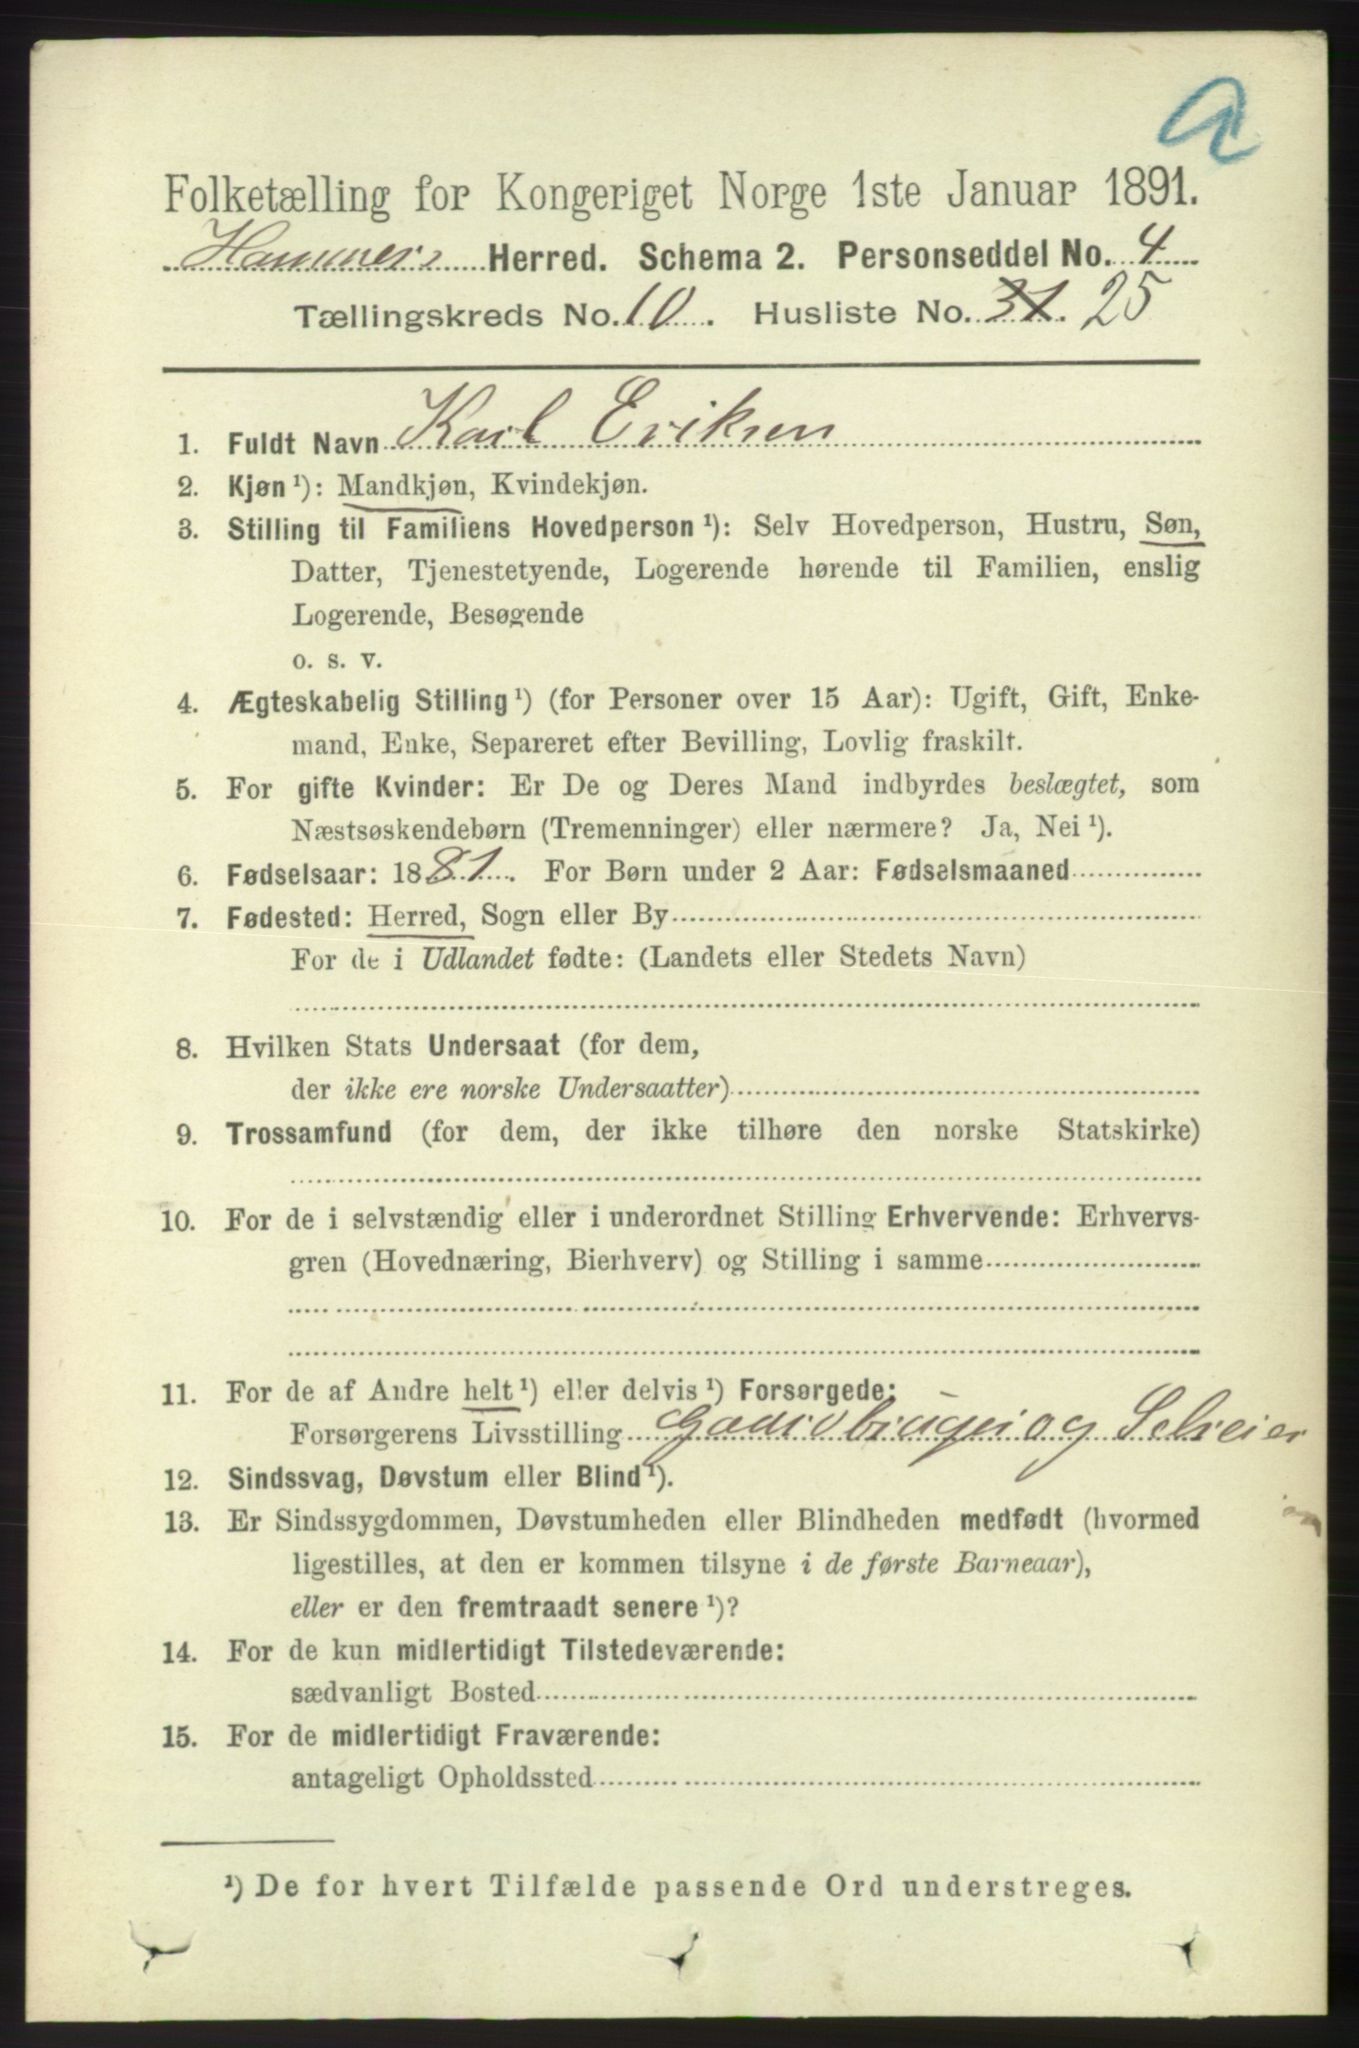 a
Folketælling for Kongeriget Norge 1ste Januar 1891.
Hammers Herred. Schema 2. Personseddel No. 4
Tællingskreds No. 10. Husliste No. 31. 25
1. Fuldt Navn Karl Eriksen
2. Kjøn ¹): Mandkjøn, Kvindekjøn.
3. Stilling til Familiens Hovedperson ¹): Selv Hovedperson, Hustru, Søn,
Datter, Tjenestetyende, Logerende hørende til Familien, enslig
Logerende, Besøgende
o. s. v.
4. Ægteskabelig Stilling ¹) (for Personer over 15 Aar): Ugift, Gift, Enke-
mand, Enke, Separeret efter Bevilling, Lovlig fraskilt.
5. For gifte Kvinder: Er De og Deres Mand indbyrdes beslægtet, som
Næstsøskendebørn (Tremenninger) eller nærmere? Ja, Nei ¹).
6. Fødselsaar: 1881. For Børn under 2 Aar: Fødselsmaaned
7. Fødested: Herred, Sogn eller By
For de i Udlandet fødte: (Landets eller Stedets Navn)
8. Hvilken Stats Undersaat (for dem,
der ikke ere norske Undersaatter)
9. Trossamfund (for dem, der ikke tilhøre den norske Statskirke)
10. For de i selvstændig eller i underordnet Stilling Erhvervende: Erhvervs-
gren (Hovednæring, Bierhverv) og Stilling i samme
11. For de af Andre helt ¹) eller delvis ¹) Forsørgede:
Forsørgerens Livsstilling Gaardbruger og Selveier
12. Sindssvag, Døvstum eller Blind ¹).
13. Er Sindssygdommen, Døvstumheden eller Blindheden medfødt (hvormed
ligestilles, at den er kommen tilsyne i de første Barneaar),
eller er den fremtraadt senere ¹)?
14. For de kun midlertidigt Tilstedeværende:
sædvanligt Bosted
15. For de midlertidigt Fraværende:
antageligt Opholdssted
¹) De for hvert Tilfælde passende Ord understreges.